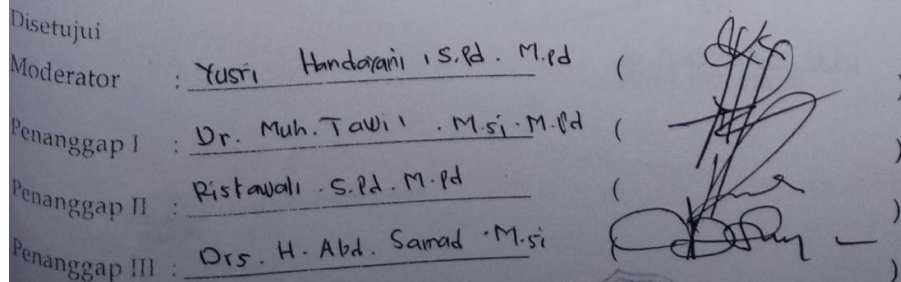 Disetujui
Moderator : Yusri Handayani , S.Pd . M.Pd ( )
Penanggap I : Dr. Muh. Tawil . M.Si . M.Pd ( )
Penanggap II : Ristawali . S.Pd . M.Pd ( )
Penanggap III : Drs . H . Abd . Samad . M.Si ( )